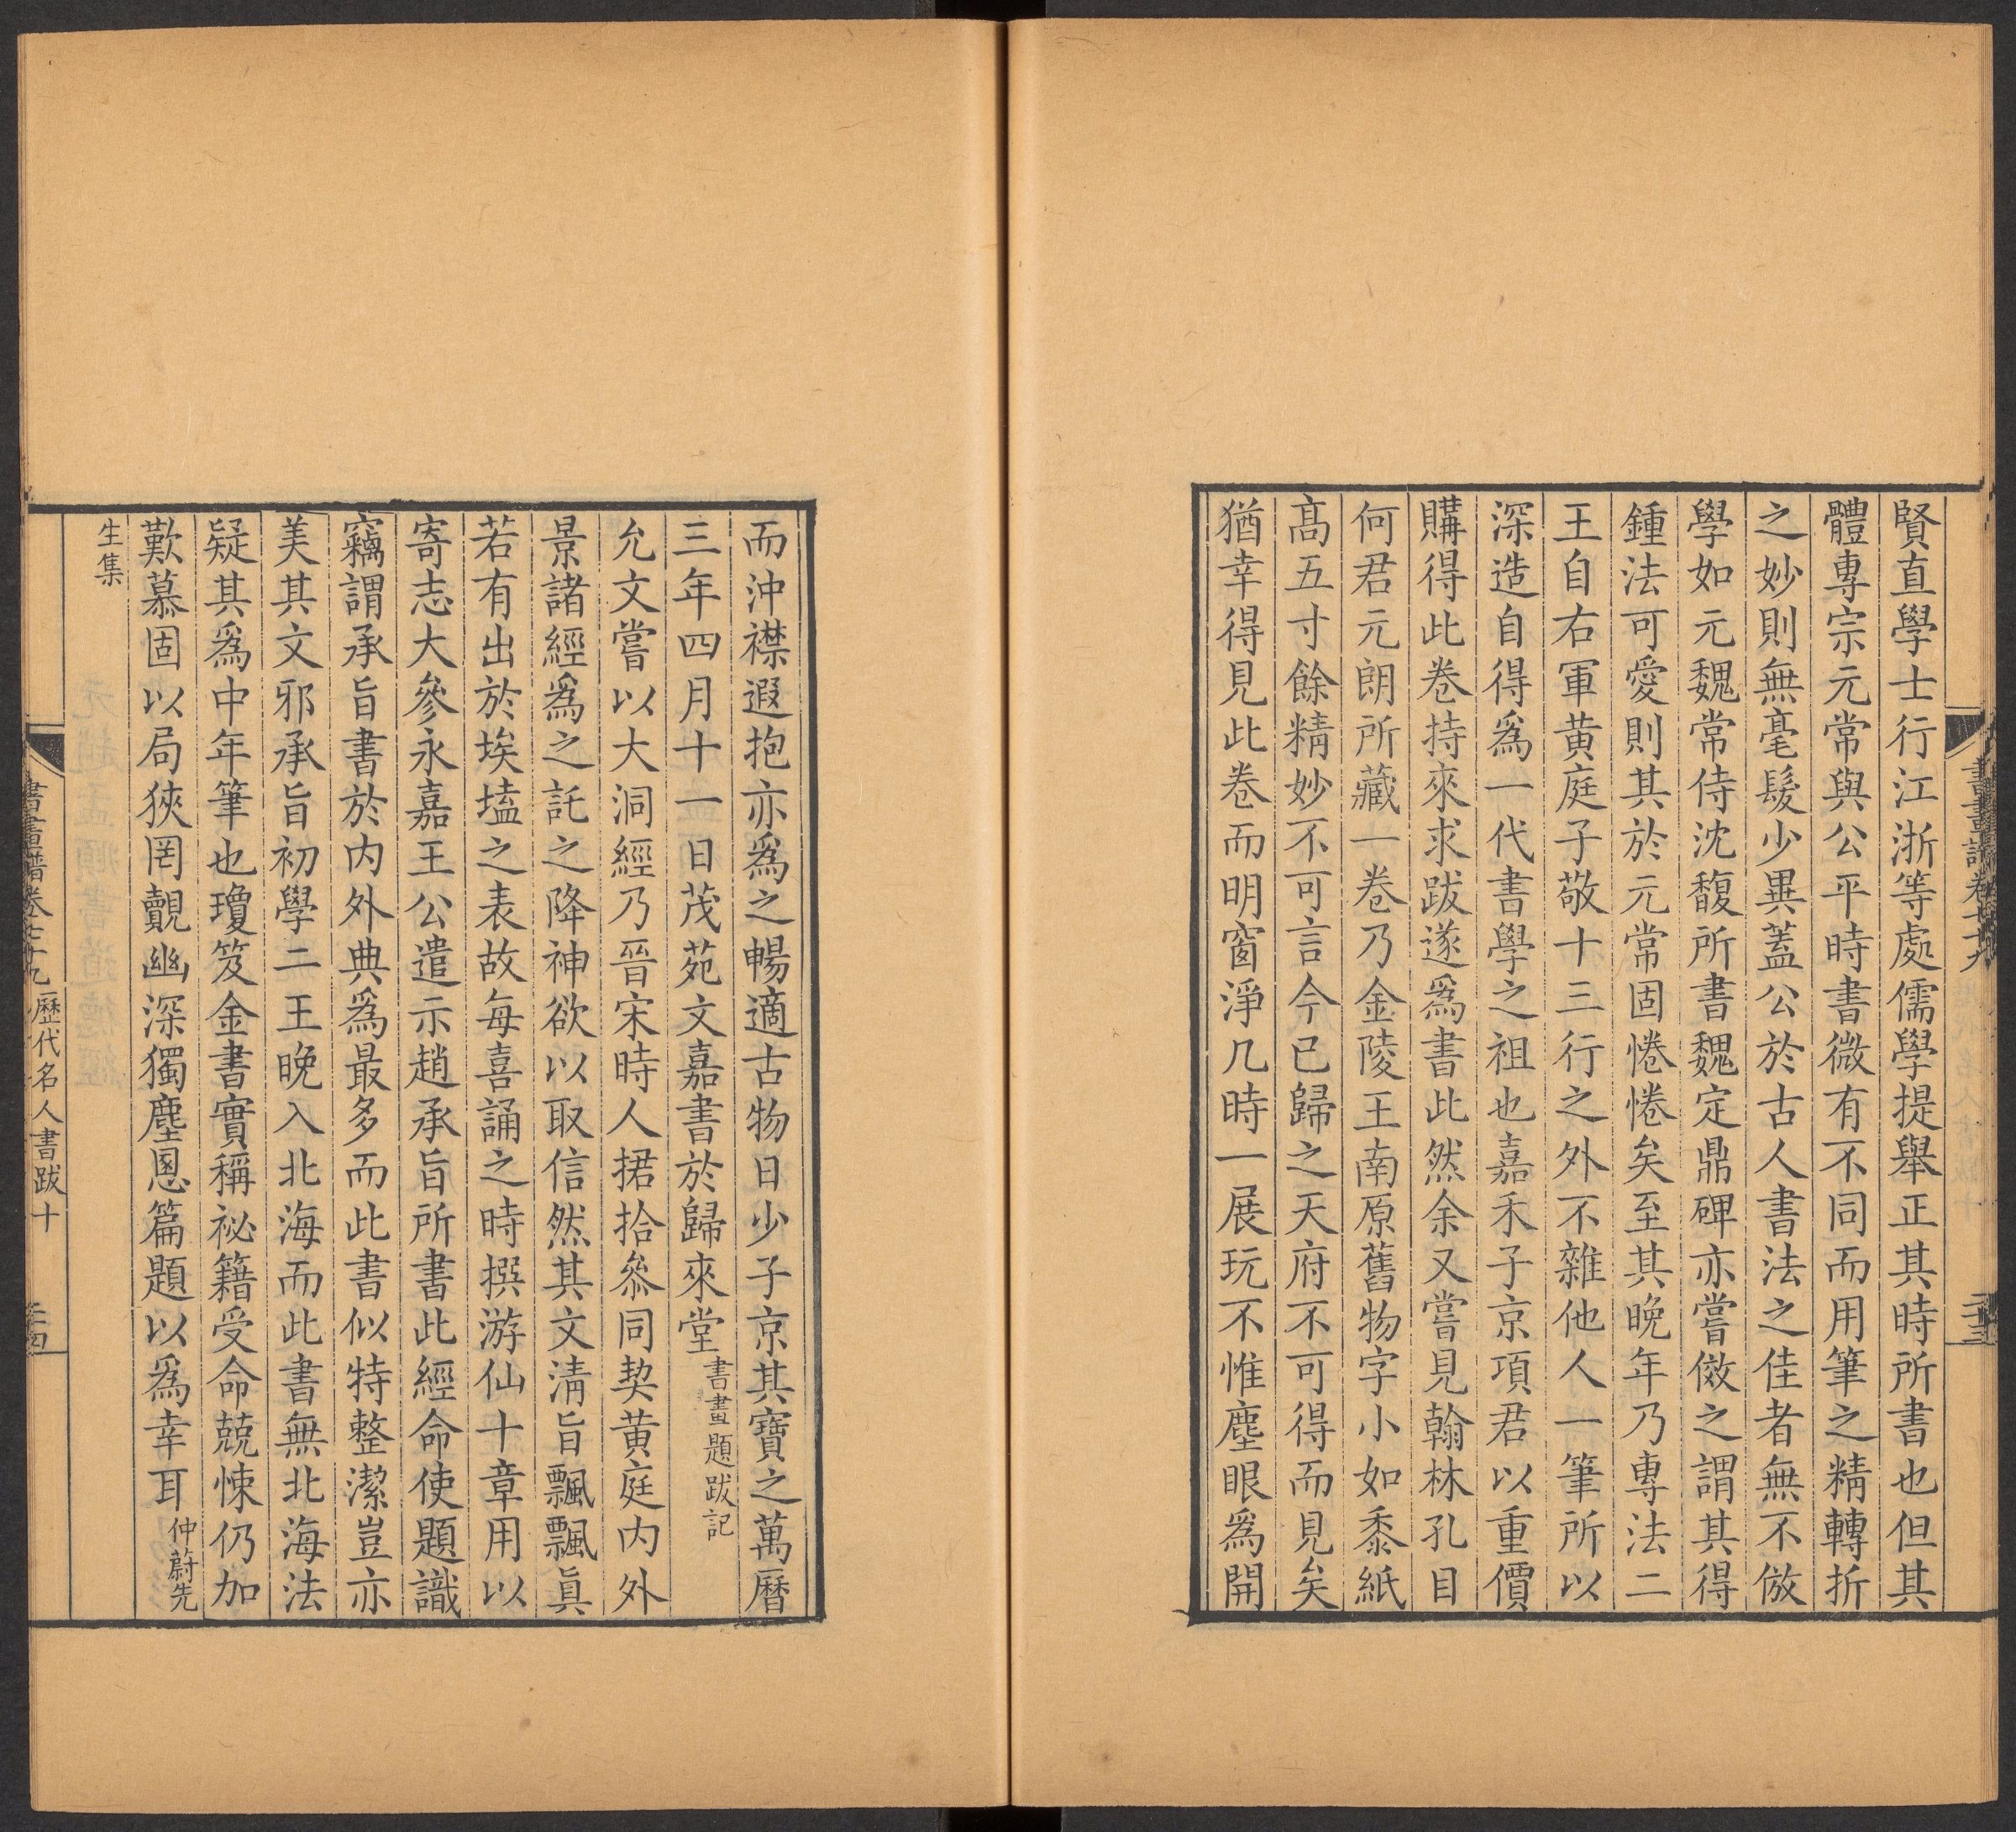 賢直學士行江浙等處儒學提舉正其時所書也但其
體專宗元常與公平時書微有不同而用筆之精轉折
之妙則無毫髮少異蓋公於古人書法之佳者無不倣
學如元魏常侍沈馥所書魏定鼎碑亦嘗倣之謂其得
鍾法可愛則其於元常固惓惓矣至其晚年乃專法二
王自右軍黃庭子敬十三行之外不雜他人一筆所以
深造自得爲一代書學之祖也嘉禾子京項君以重價
購得此卷持來求跋遂爲書此然余又嘗見翰林孔目
何君元朗所藏一卷乃金陵王南原舊物字小如黍紙
髙五寸餘精妙不可言今已歸之天府不可得而見矣
猶幸得見此卷而明窗淨几時一展玩不惟塵眼爲開
而沖襟遐抱亦爲之暢適古物日少子京其寶之萬曆
三年四月十一日茂苑文嘉書於歸來堂書畫題跋記
允文嘗以大洞經乃晉宋時人捃拾叅同契黃庭内外
景諸經爲之託之降神欲以取信然其文淸旨飄飄眞
若有出於埃壒之表故每喜誦之時撰游仙十章用以
寄志大參永嘉王公遣示趙承旨所書此經命使題識
竊謂承旨書於内外典爲最多而此書似特整潔豈亦
美其文邪承旨初學二王晚入北海而此書無北海法
疑其爲中年筆也瓊笈金書實稱祕籍受命兢悚仍加
歎慕固以局狹罔覿幽深獨塵恩篇題以爲幸耳仲蔚先
生集
書畫譜卷七十九 歷代名人書跋十 二十四